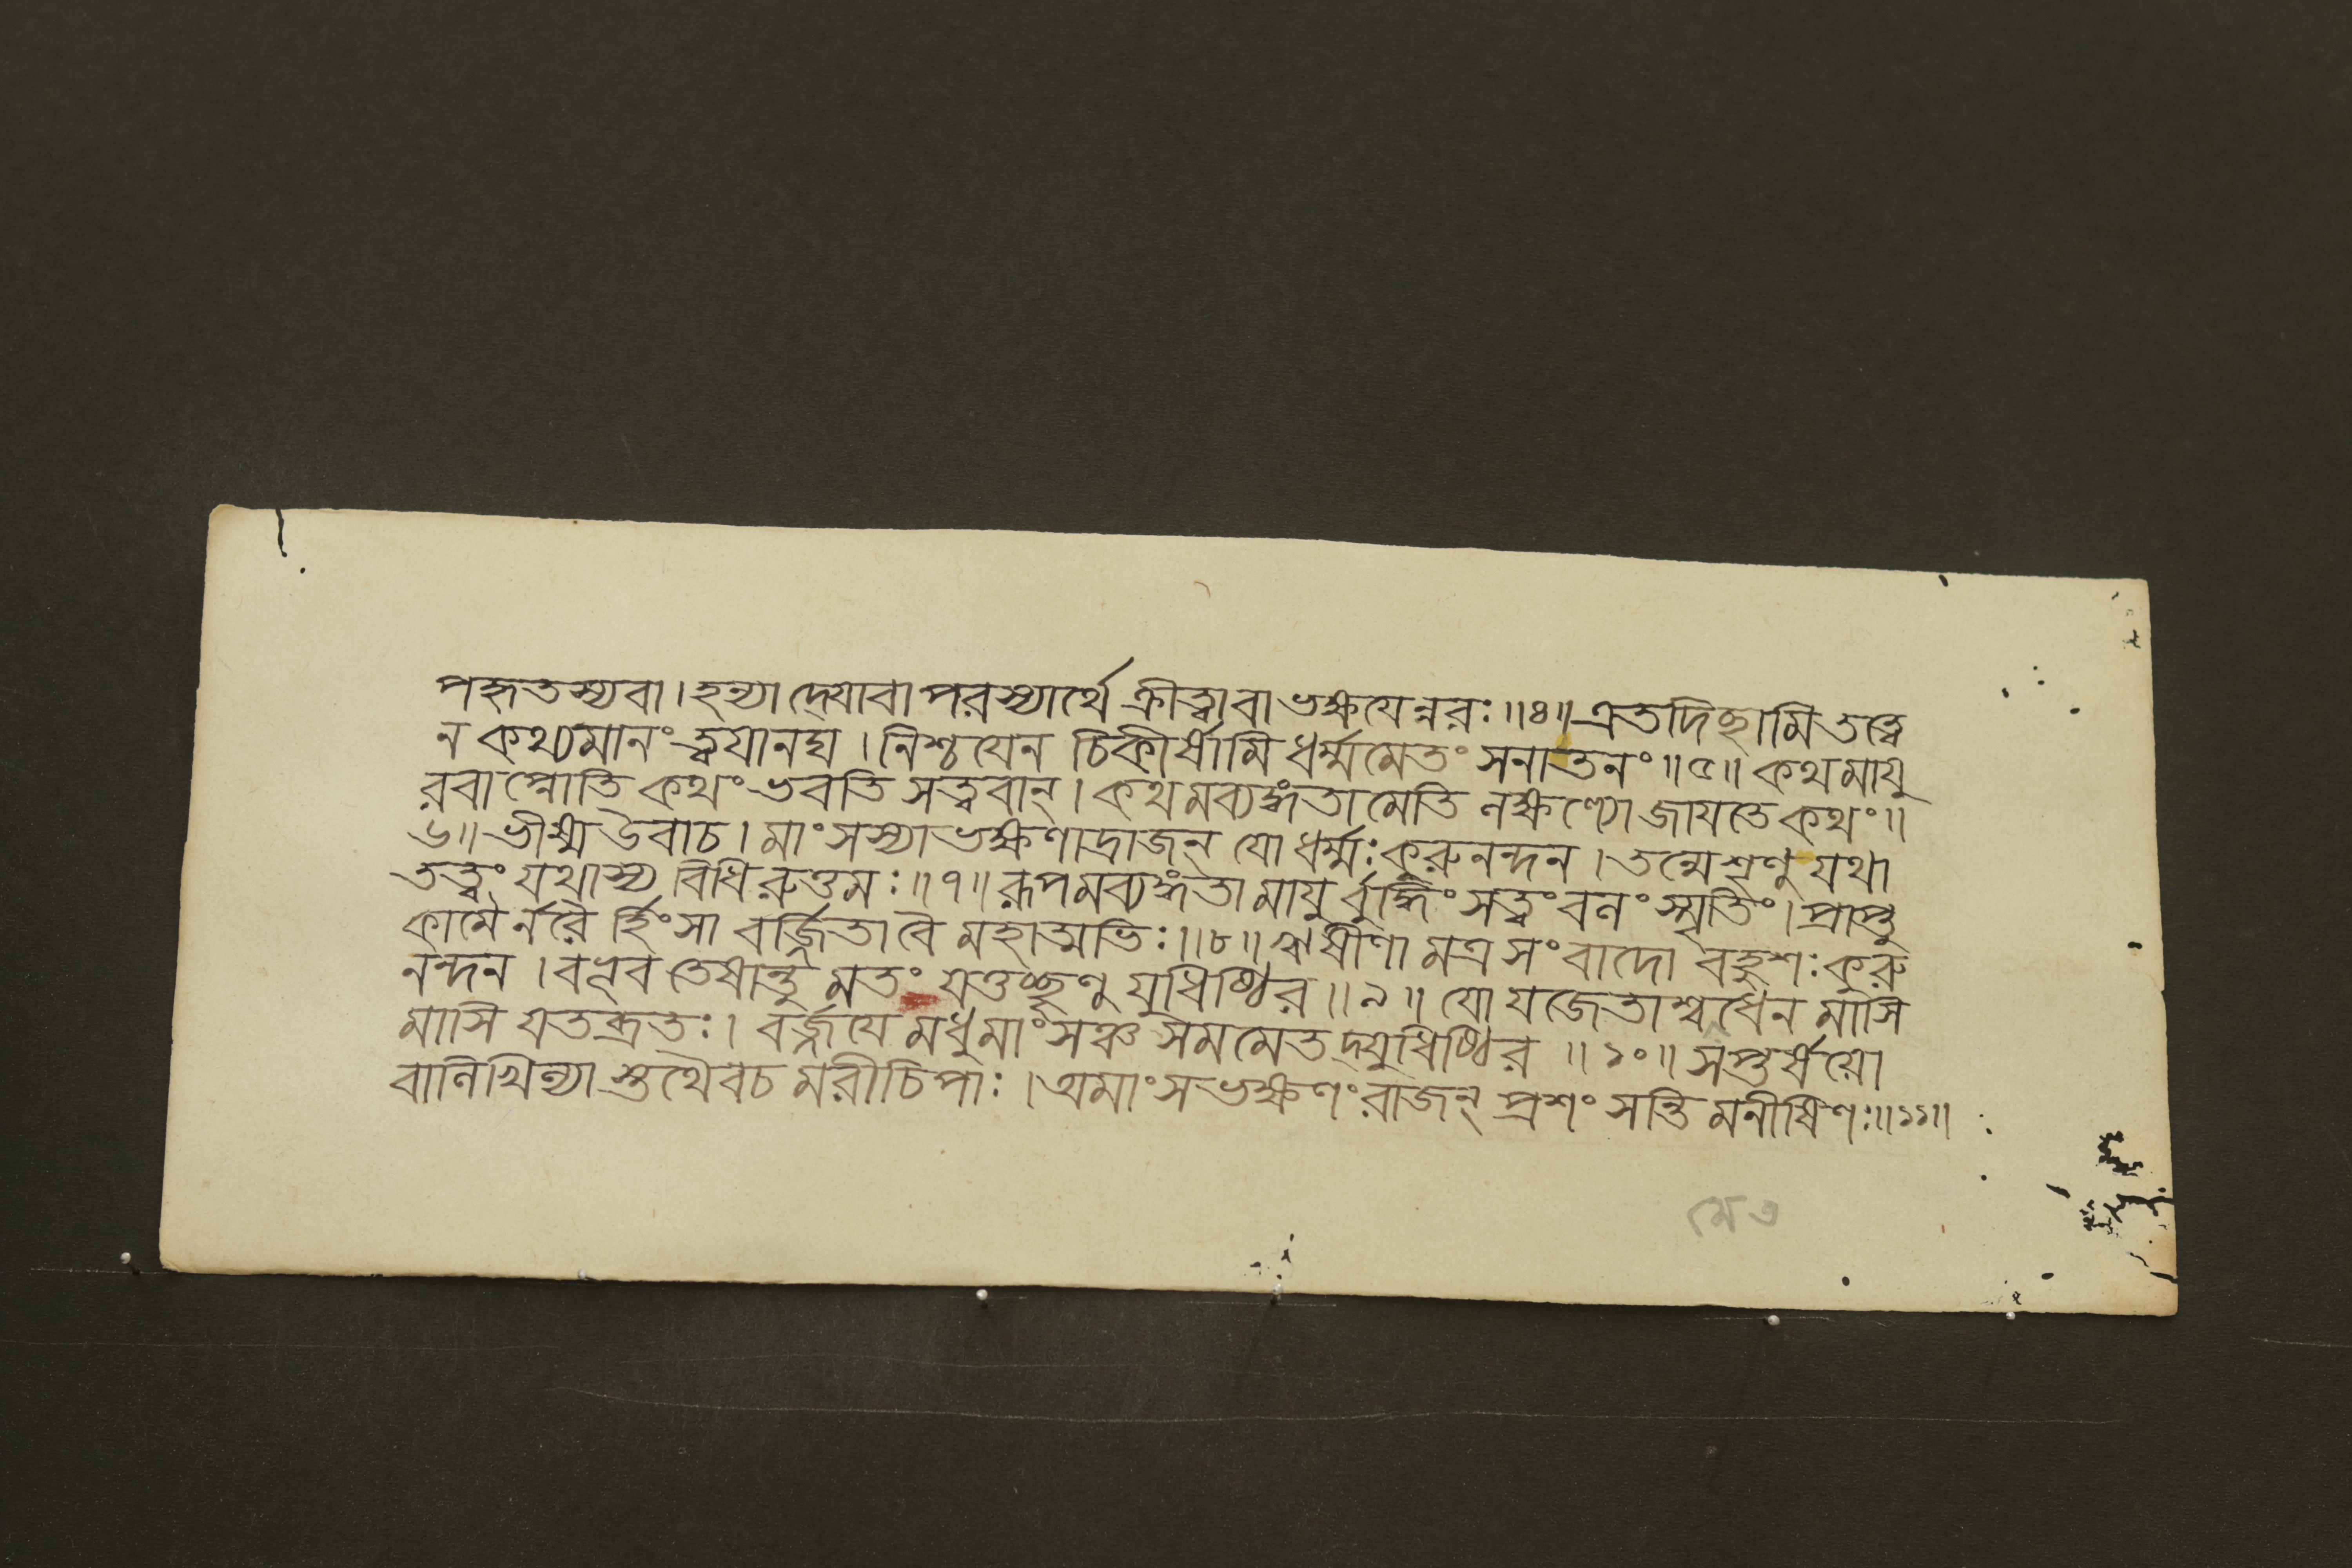 পহৃতস্যবা। হন্যাদ্যোবাপরস্যার্থে ক্রীত্বাবাভক্ষযেন্নরঃ॥৪॥এতদিছামিতত্ত্বে
ন কথ্যমানং ত্বযানঘ। নিশ্চযেন চিকীর্ষামি ধর্ম্মমেতং সনাতনং॥৫॥ কথমাযু
রবাপ্নোতি কথং ভবতি সত্ত্ববান্। কথমব্যঙ্গতামেতি লক্ষণ্যোজাযতেকথং॥
৬॥ ভীষ্ম উবাচ। মাংসস্যাভক্ষণাদ্রাজন্ যো ধর্ম্মঃকুরুনন্দন। তন্মেশৃণু যথা
তত্ত্বং যথাস্য বিধিরুত্তমঃ॥৭॥ রূপমব্যঙ্গতামাযুর্বুদ্ধিং সত্ত্বং বলং স্মৃতিং। প্রাপ্তু
কামৈর্নরৈর্হিংসা বর্জ্জিতাবৈ মহাত্মভিঃ॥৮॥ ঋষীণামত্রসংবাদো বহুশঃকুরু
নন্দন। বভূব তেষান্তু মতং যত্তচ্ছৃণু যুধিষ্ঠির॥৯॥ যো যজেতাশ্বধেন মাসি
মাসি যতব্রতঃ। বর্জ্জযে মধুমাংসঞ্চ সমমেতদ্যুধিষ্ঠির॥১০॥ সপ্তর্ষয়ো
বালিখিল্যাস্তথৈবচ মরীচিপাঃ। অমাংসভক্ষণং রাজন্ প্রশংসন্তি মনীষিণঃ॥১১॥
মেত